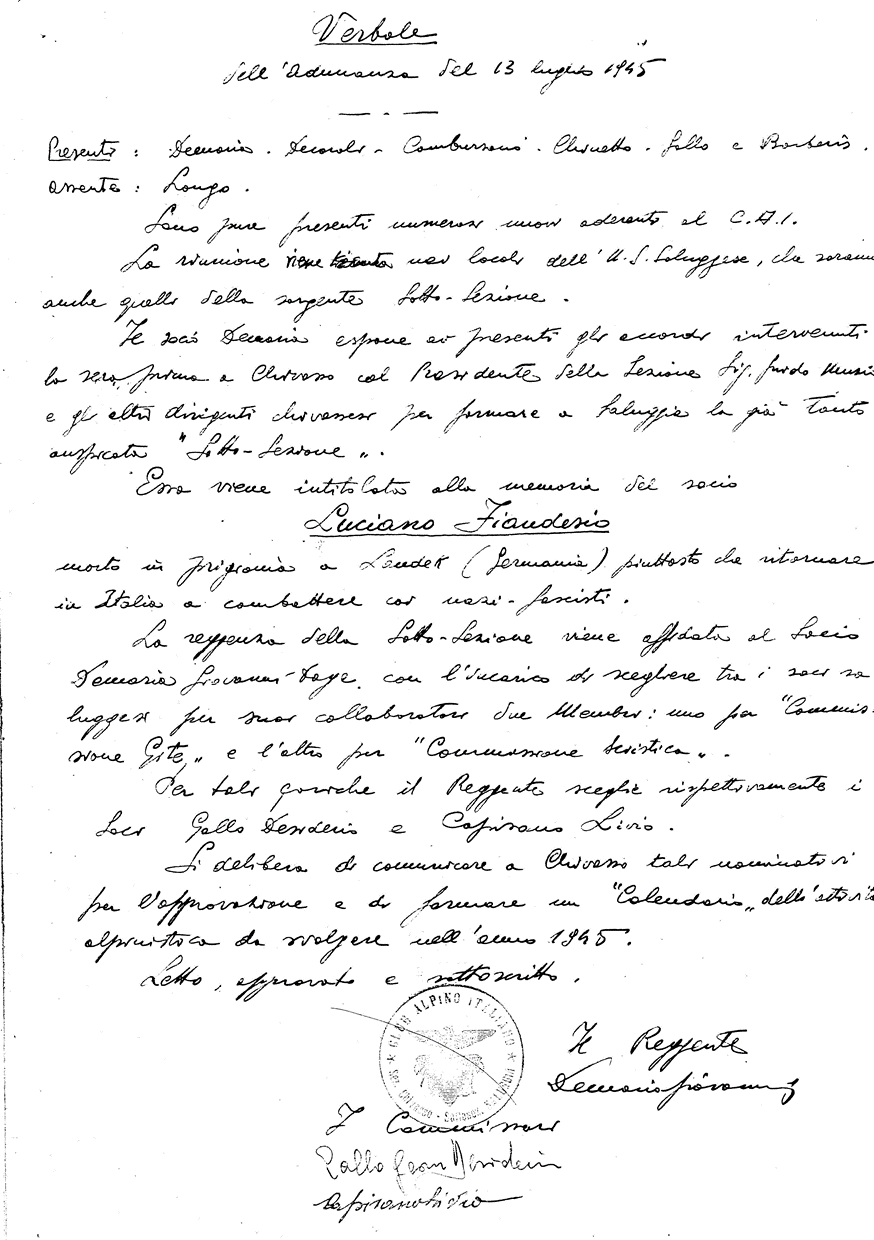 Verbale
dell'Adunanza del 13 luglio 1945
Presenti: Demaria - Decaroli - Chiuetto - Gallo e Barberis.
assente: Longo.
Sono pure presenti numerosi nuovi aderenti al C.A.I.
La riunione viene nei locali dell'U.S. Saluggese, che saranno
anche quelli della sorgente Sotto-Sezione.
Il socio Demaria espone ai presenti gli accordi intervenuti
la sera prima a Chivasso col Presidente della Sezione Sig. Guido
e gli altri dirigenti chivassesi per formare a Saluggia la già tanto
auspicata "Sotto-Sezione".
Essa viene intitolata alla memoria del socio
Luciano Fiandesio
morto in prigionia a Landek (Germania) piuttosto che ritornare
in Italia a combattere coi nazi-fascisti.
La reggenza della Sotto-Sezione viene affidata al Socio
Demaria Giovanni con l'incarico di scegliere tra i soci sa
luggesi per suoi collaboratori due Membri: uno per "Commis-
sione Gite" e l'altro per "Commissione Sciistica".
Per tali cariche il Reggente sceglie rispettivamente i
Soci Gallo Desiderio e Capirano Livio.
Si delibera di comunicare a Chivasso tali nominativi
per l'approvazione e di formare un "Calendario" dell'attività
alpinistica da svolgere nell'anno 1945.
Letto, approvato e sottoscritto.
CLUB ALPINO ITALIANO
Sez. Chivasso - Sottosez. SALUGGIA
Il Reggente
Demaria Giovanni
I Commissari
Gallo Gian Desiderio
Capirano Livio